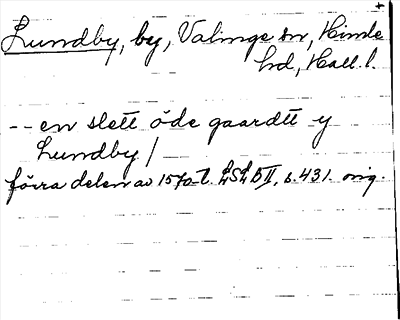 Lundby, by, Valinge sn, Himle
hd, Hall. l.
-- en slett öde gaardtt y
Lundby/
förra delen av 1570-t. LSH B II, s. 431. orig.